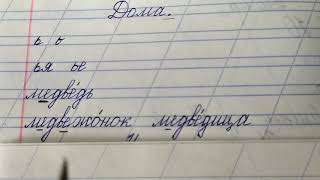 Дома.
ь ь
ья ье
медве́дь
медвежо́нок медве́дица